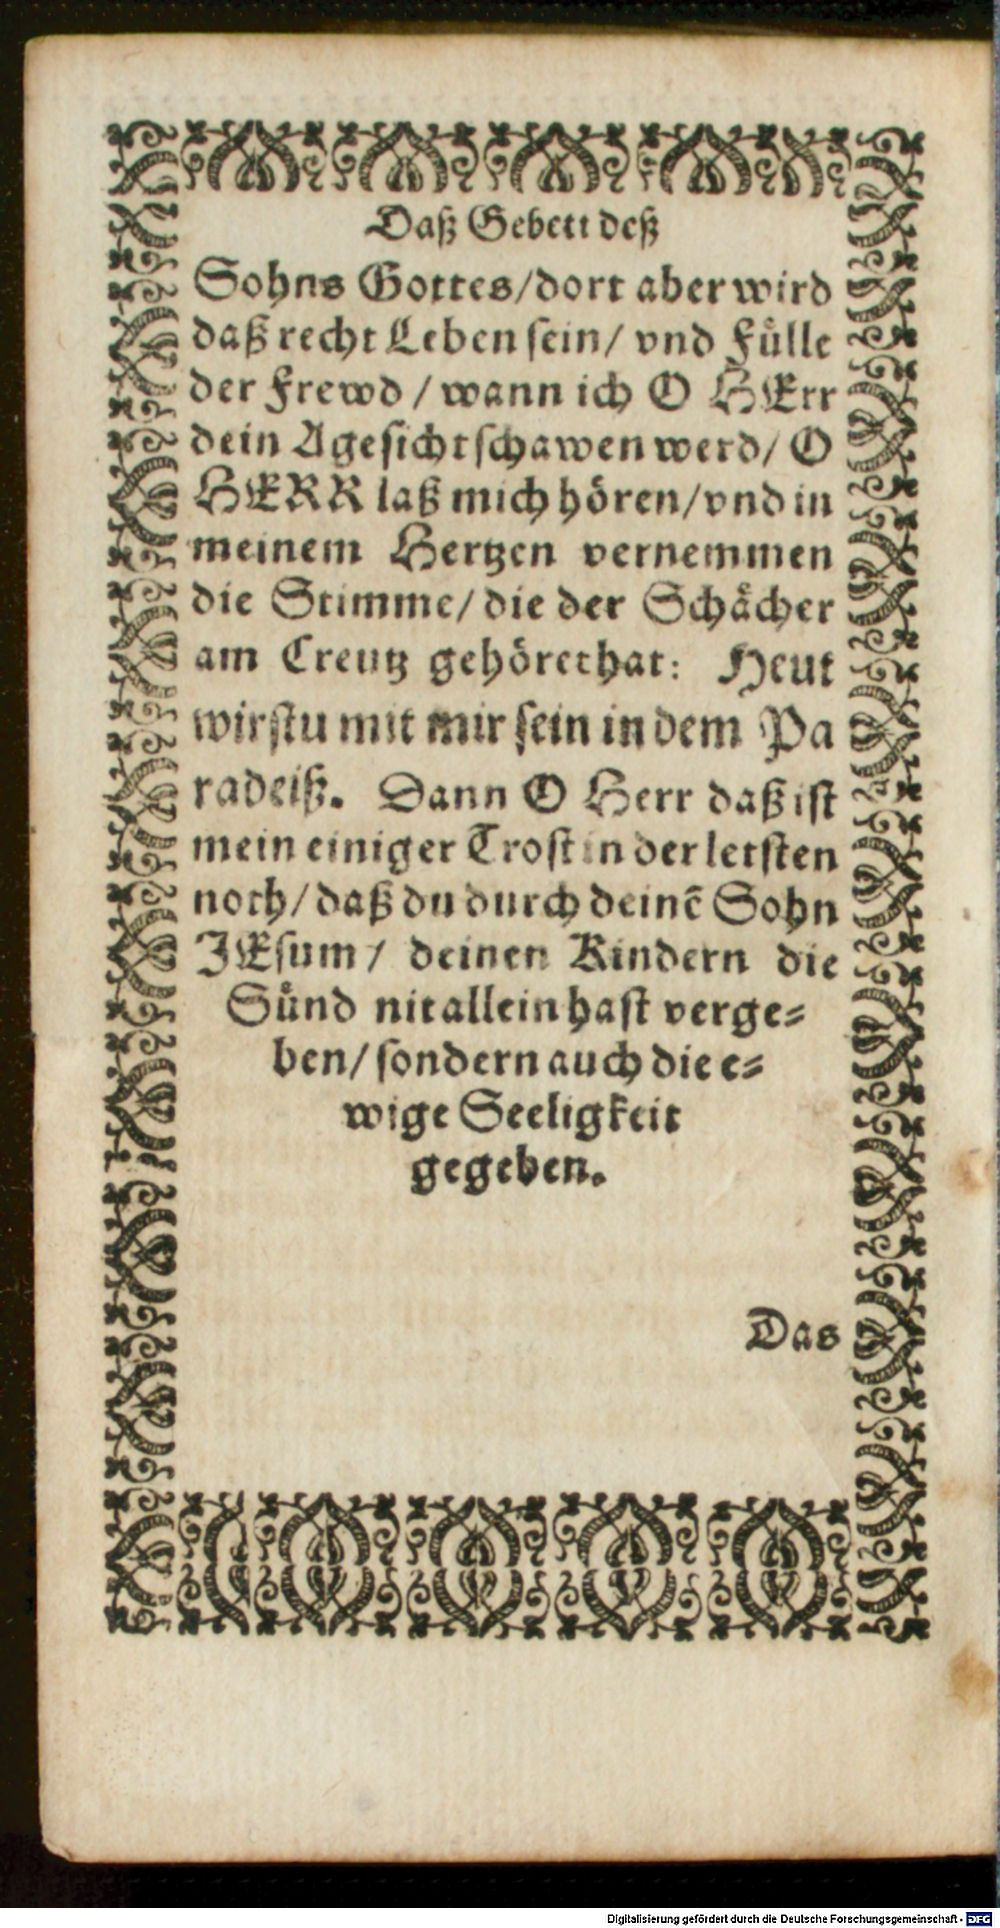 Daß Gebett deß
Sohns Gottes/dort aber wird
daß recht Leben sein/ vnd Fülle
der Frewd / wann ich O HErr
dein Agesicht schawen werd/ O
HERR laß mich hören/vnd in
meinem Hertzen vernemmen
die Stimme/ die der Schächer
am Creutz gehöret hat: Heut
wirstu mit mir sein in dem Pa
radeiß. Dann O Herr daß ist
mein einiger Trost in der letsten
noth/ daß du durch deinē Sohn
JEsum/ deinen Kindern die
Sünd nit allein hast verge⸗
ben/ sondern auch die e⸗
wige Seeligkeit
gegeben.
Das
Digitalisierung gefördert durch die Deutsche Forschungsgemeinschaft - DFG